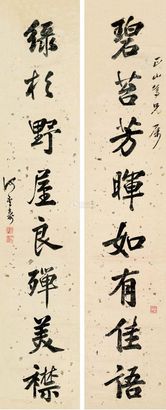 碧苔芳暉如有佳語
綠杉野屋良殫美襟